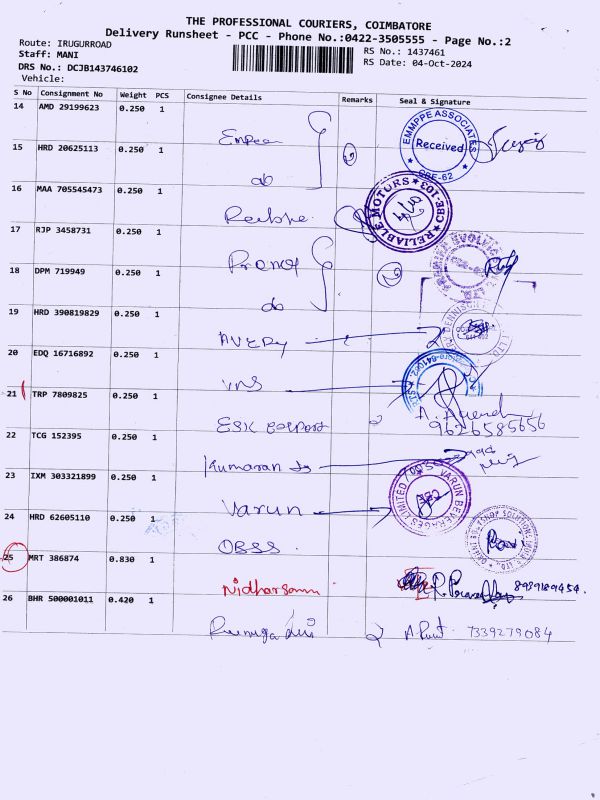 THE PROFESSIONAL COURIERS, COIMBATORE
Delivery Runsheet - PCC - Phone No.:0422-3505555 - Page No.:2
Route: IRUGURROAD
RS No.: 1437461
Staff: MANI
RS Date: 04-Oct-2024
DRS No.: DCJB143746102
Vehicle:
S No Consignment No Weight PCS Consignee Details Remarks Seal & Signature
14 AMD 29199623 0.250 1
EMMPPE ASSOCIATES
Received
CBE-62
15 HRD 20625113 0.250 1
do
16 MAA 705545473 0.250 1
RELIABLE MOTORS CBE-103
17 RJP 3458731 0.250 1
18 DPM 719949 0.250 1
do
19 HRD 390819829 0.250 1
AVERY
20 EDQ 16716892 0.250 1
VNS
21 TRP 7809825 0.250 1
9626585656
22 TCG 152395 0.250 1
Kumaran
23 IXM 303321899 0.250 1
Varun
VARUN BEVERAGES LIMITED
24 HRD 62605110 0.250 1
OBSS
25 MRT 386874 0.830 1
8939189454.
26 BHR 500001011 0.420 1
7339279084